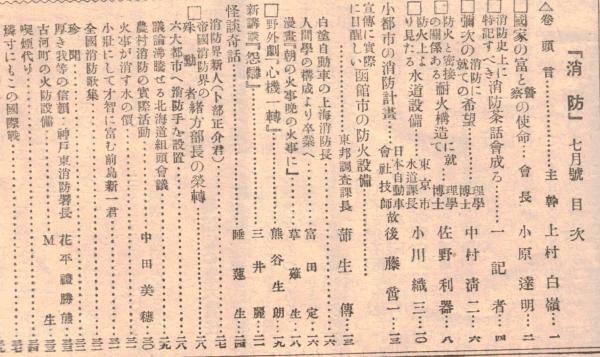 『消防』 七月號 目次
△卷頭言…………主幹 上村白嶺…一
□國家の富と警察の使命…會長 小原達明…二
□消防史上に特記すべき消防茶話會成る…一記者…四
□彌次の消防に就ての希望…理學博士 中村淸二…六
□防火と密接の關係ある耐火構造に就て…理學博士 佐野利器…八
□防火上より見たる水道設備…東京市水道課長 小川織三…一〇
□小都市の消防計畫…日本自動車會社技師 故後藤當一…一三
□宣傳に實際に目醒しい函館市の防火設備…東邦調査課長 蒲生傳…一三
白塗自動車の上海消防長…一六
人間學の構成より卒業へ…富田定…一六
漫畫『朝の火事晩の火事に』…草薙生…一八
□野外劇『心機一轉』…熊谷生朗…一九
新講談『怨戀』…三井麗…二二
怪談奇話…睡蓮生…二四
消防界新人（卜部正介君）
□帝國消防界の殊勳者緒方部長の榮轉
六大都市へ消防手を設置…二八
議論沸騰せる北海道組頭會議
農村消防の實際活動…中田美穂…三〇
火事が消す水の價
小壯にして才智に富む前島新一君
全國消防歌集
珍聞
厚き我等の信額…神戶東消防署長 花平禮勝熊
古河町の火防設備…M生
喫煙代り
燐寸にもこの國際戰